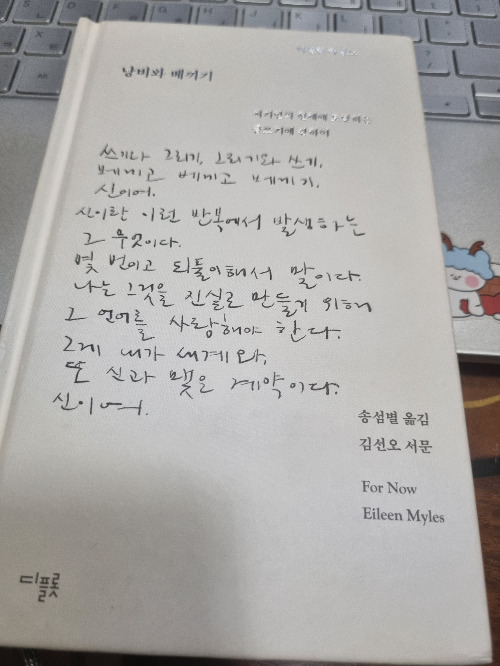 낭비와 베끼기
쓰기나 그리기, 그리기와 쓰기,
베끼고 베끼고 베끼기.
신이여.
신이란 이런 반복에서 발생하는
그 무엇이다.
몇 번이고 되풀이해서 말이다.
나는 그것을 진실로 만들기 위해
그 언어를 사랑해야 한다.
그게 내가 세계와,
또 신과 맺은 계약이다.
신이여.
송섬별 옮김
김선오 서문
For Now
Eileen Myles
디플롯